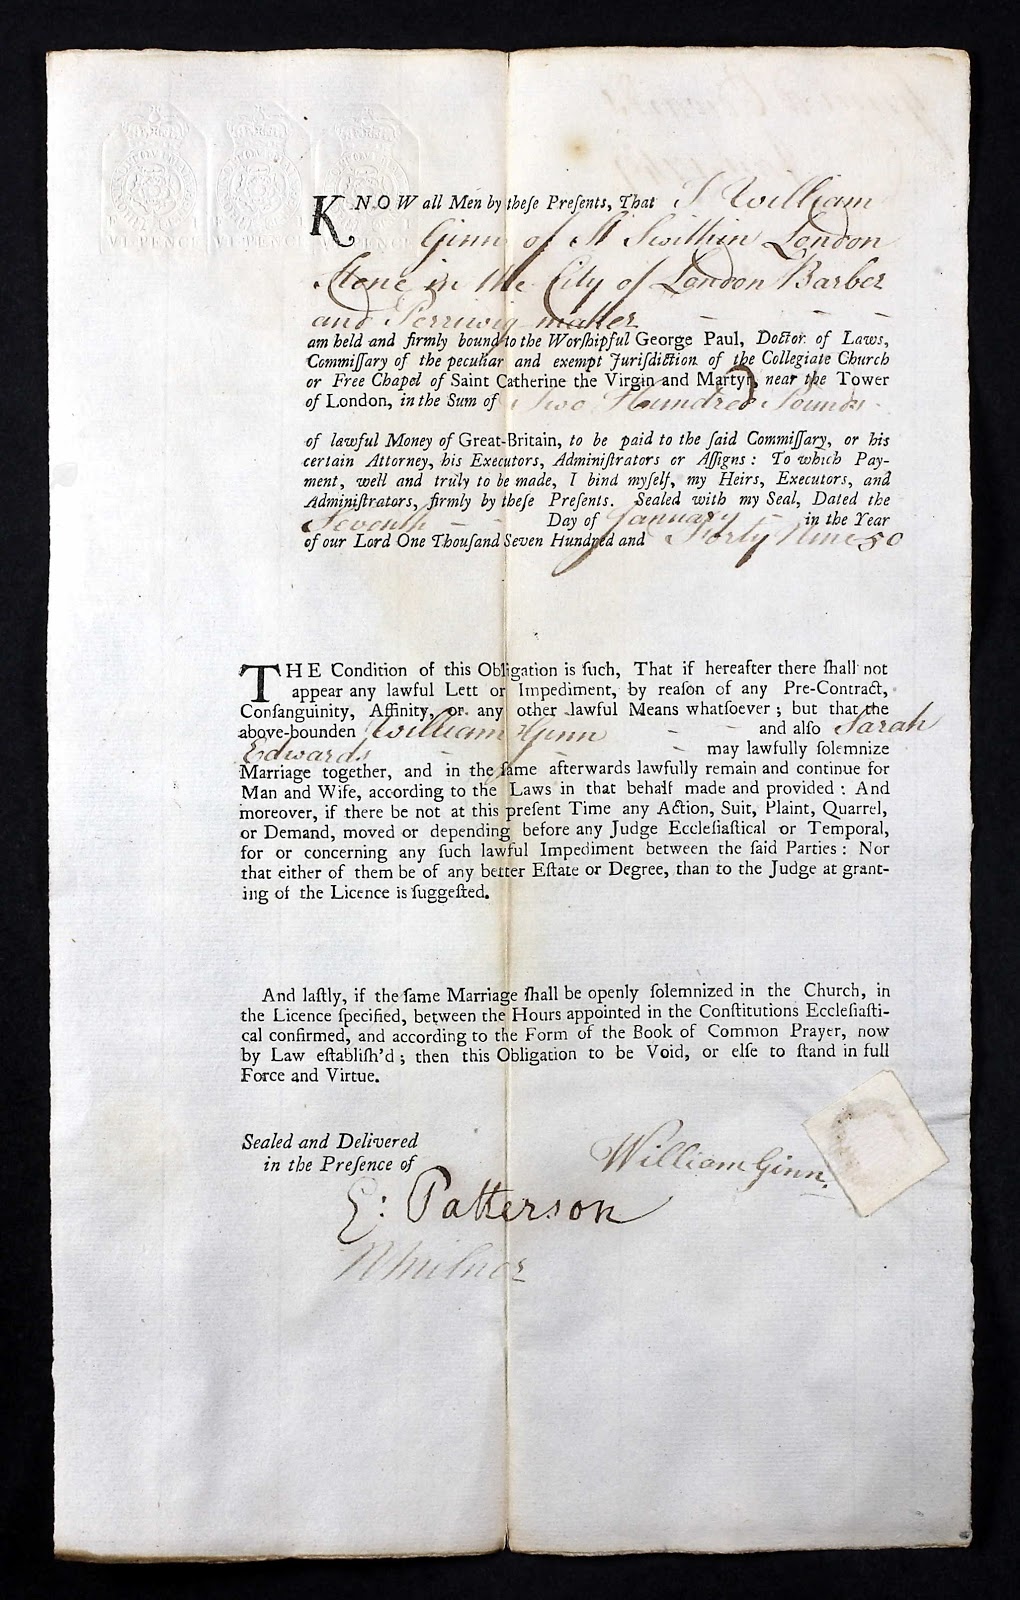 VI PENCE VI PENCE VI PENCE
KNOW all Men by theſe Preſents, That I William
Ginn of St Swithin London
Stone in the City of London Barber
and Perriwig maker - - -
am held and firmly bound to the Worſhipful George Paul, Doctor of Laws,
Commiſſary of the peculiar and exempt Juriſdiction of the Collegiate Church
or Free Chapel of Saint Catherine the Virgin and Martyr, near the Tower
of London, in the Sum of Two Hundred Pounds -
of lawful Money of Great-Britain, to be paid to the ſaid Commiſſary, or his
certain Attorney, his Executors, Adminiſtrators or Aſſigns: To which Pay-
ment, well and truly to be made, I bind myſelf, my Heirs, Executors, and
Adminiſtrators, firmly by theſe Preſents. Sealed with my Seal, Dated the
Seventh - - Day of January - in the Year
of our Lord One Thouſand Seven Hundred and Forty Nine 50
THE Condition of this Obligation is ſuch, That if hereafter there ſhall not
appear any lawful Lett or Impediment, by reaſon of any Pre-Contract,
Conſanguinity, Affinity, or any other lawful Means whatſoever; but that the
above-bounden William Ginn - - and alſo Sarah
Edwards - - - may lawfully ſolemnize
Marriage together, and in the ſame afterwards lawfully remain and continue for
Man and Wife, according to the Laws in that behalf made and provided: And
moreover, if there be not at this preſent Time any Action, Suit, Plaint, Quarrel,
or Demand, moved or depending before any Judge Eccleſiaſtical or Temporal,
for or concerning any ſuch lawful Impediment between the ſaid Parties: Nor
that either of them be of any better Eſtate or Degree, than to the Judge at grant-
ing of the Licence is ſuggeſted.
And laſtly, if the ſame Marriage ſhall be openly ſolemnized in the Church, in
the Licence ſpecified, between the Hours appointed in the Conſtitutions Eccleſiaſti-
cal confirmed, and according to the Form of the Book of Common Prayer, now
by Law eſtabliſh'd; then this Obligation to be Void, or elſe to ſtand in full
Force and Virtue.
Sealed and Delivered
in the Preſence of
William Ginn.
E: Patterson